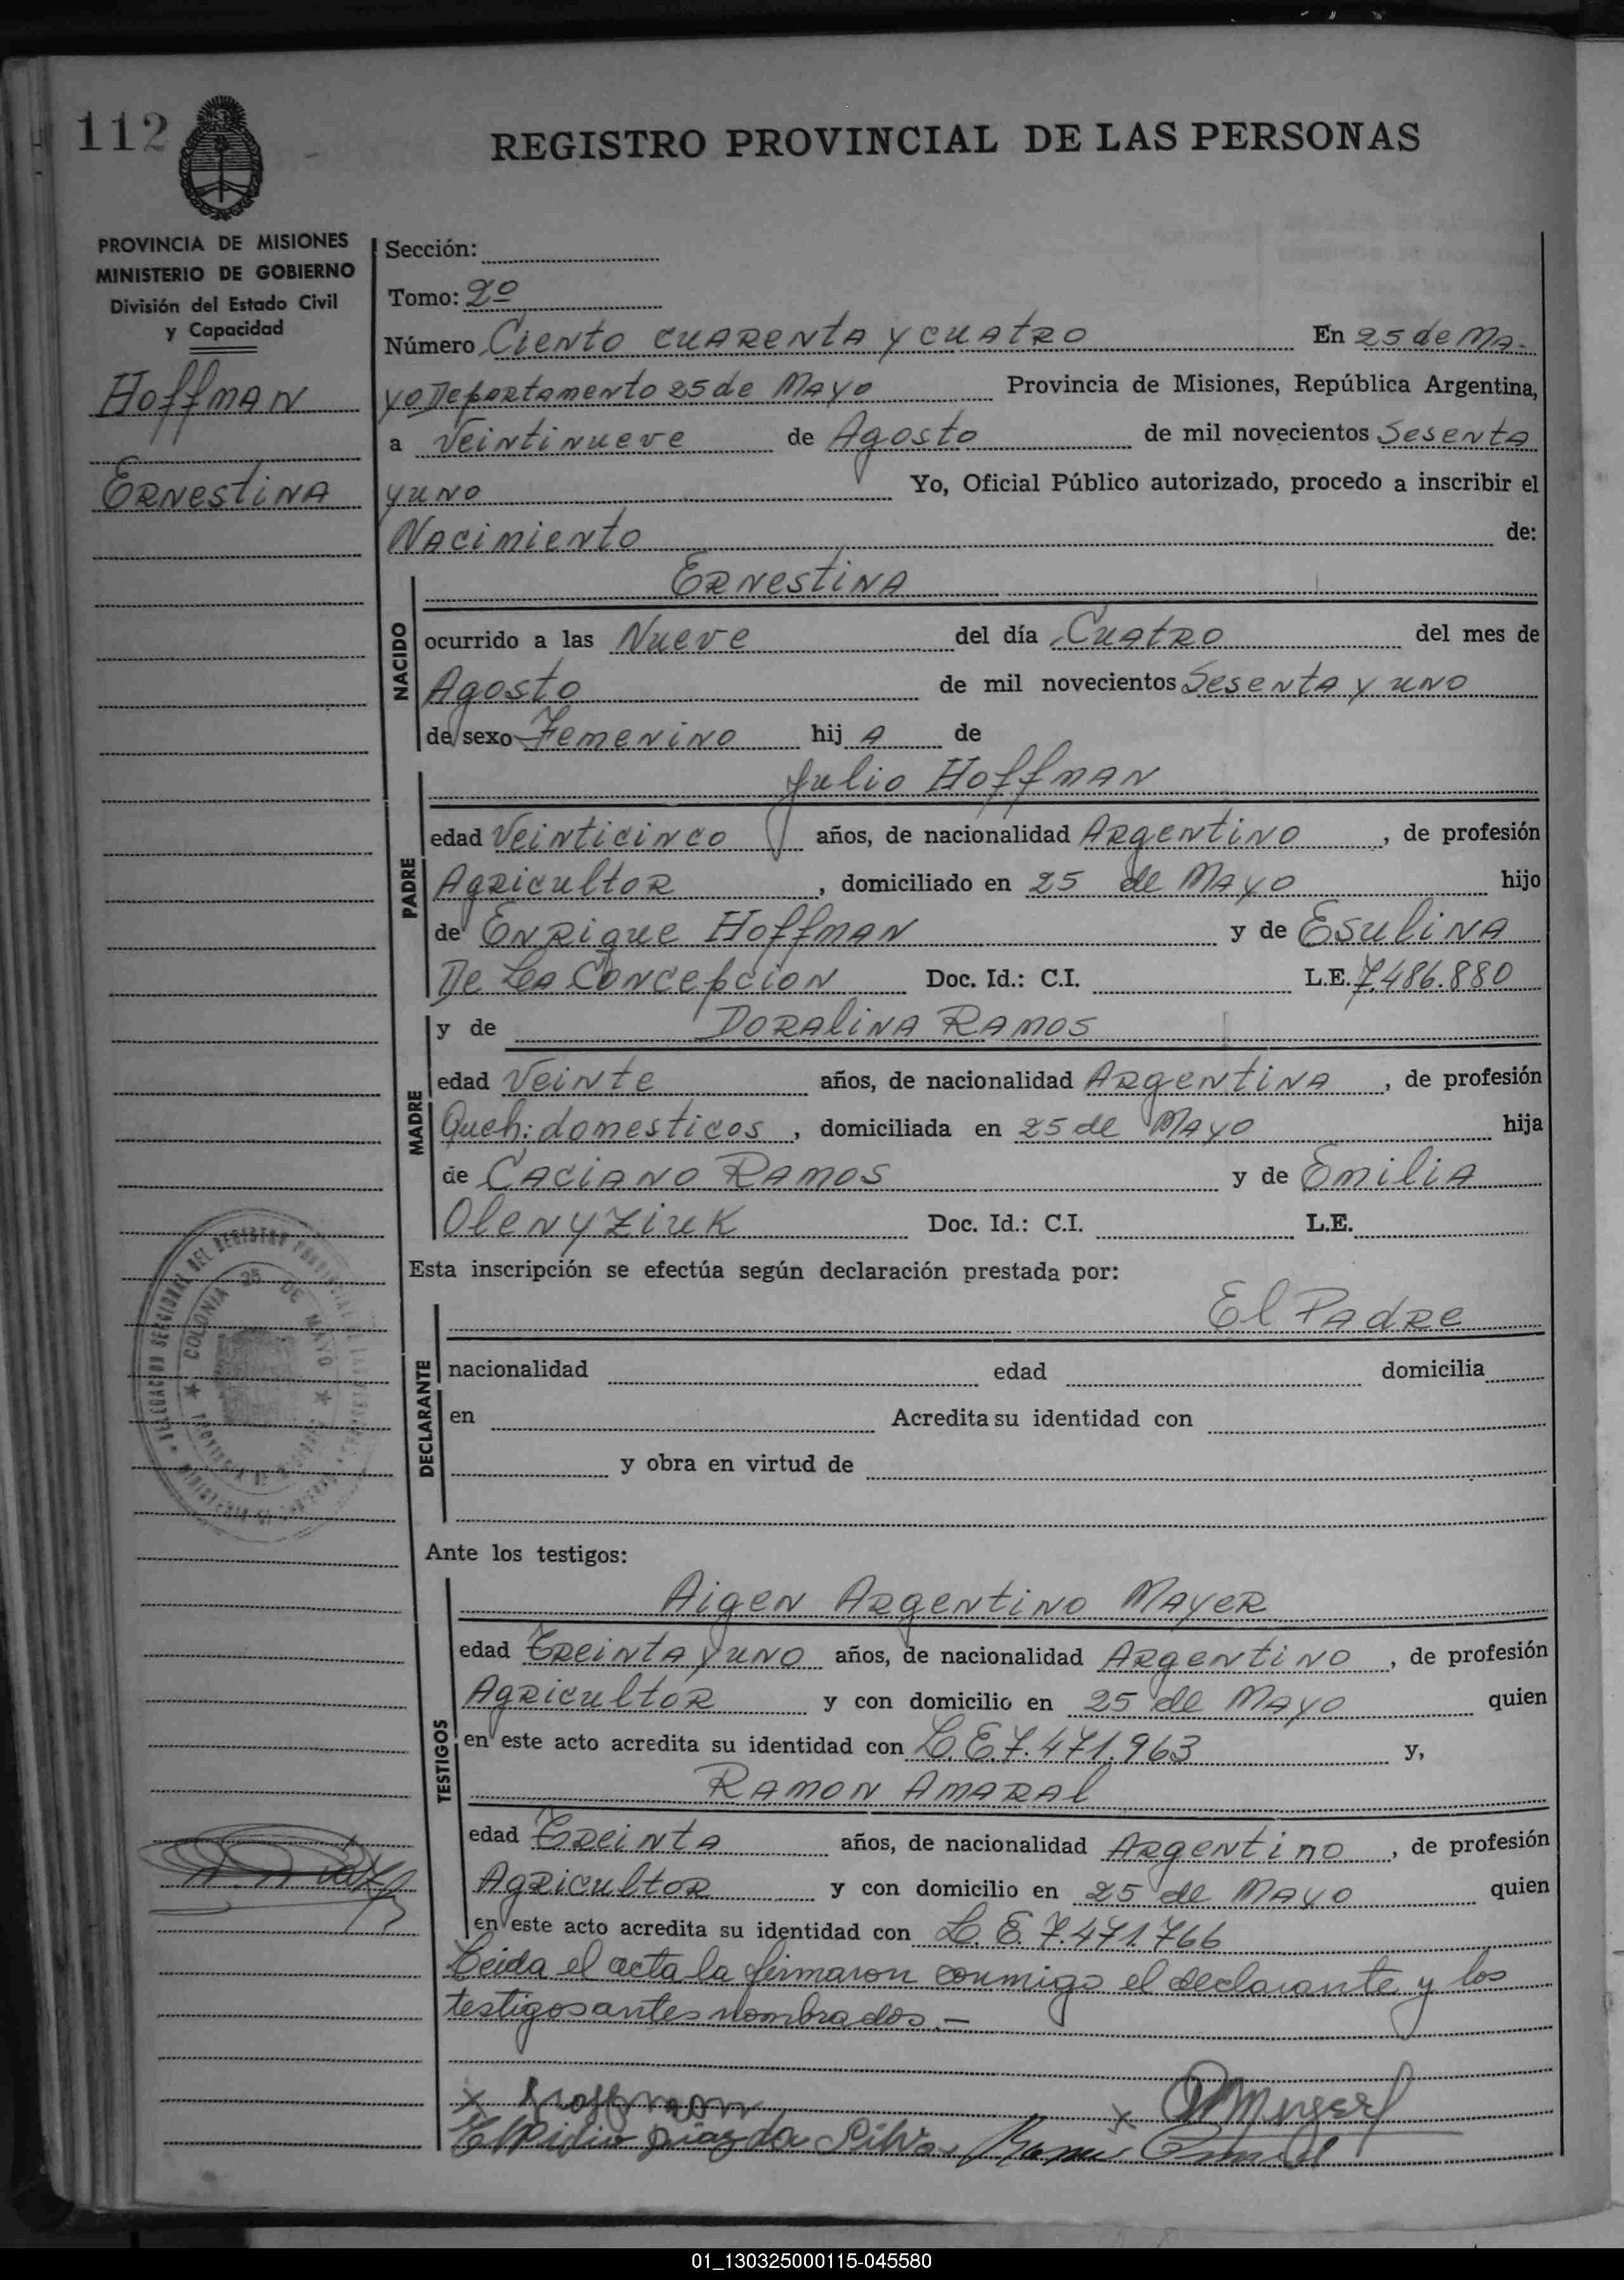 112
REGISTRO PROVINCIAL DE LAS PERSONAS
PROVINCIA DE MISIONES
MINISTERIO DE GOBIERNO
División del Estado Civil
y Capacidad
Hoffman
Ernestina
Sección:
Tomo: 2º
Número Ciento cuarenta y cuatro En 25 de Ma-
yo Departamento 25 de Mayo Provincia de Misiones, República Argentina,
a Veintinueve de Agosto de mil novecientos Sesenta
y uno Yo, Oficial Público autorizado, procedo a inscribir el
Nacimiento de:
NACIDO
Ernestina
ocurrido a las Nueve del día Cuatro del mes de
Agosto de mil novecientos Sesenta y uno
de sexo Femenino hij a de
PADRE
Julio Hoffman
edad Veinticinco años, de nacionalidad Argentino, de profesión
Agricultor, domiciliado en 25 de Mayo hijo
de Enrique Hoffman y de Esulina
De La Concepcion Doc. Id.: C.I. L.E. 7.486.880
MADRE
y de Doralina Ramos
edad Veinte años, de nacionalidad Argentina, de profesión
Queh: domesticos, domiciliada en 25 de Mayo hija
de Caciano Ramos y de Emilia
Olenyziuk Doc. Id.: C.I. L.E.
Esta inscripción se efectúa según declaración prestada por:
DECLARANTE
El Padre
nacionalidad edad domicilia
en Acredita su identidad con
y obra en virtud de
COLONIA 25 DE MAYO
Ante los testigos:
TESTIGOS
Aigen Argentino Mayer
edad Treinta y uno años, de nacionalidad Argentino, de profesión
Agricultor y con domicilio en 25 de Mayo quien
en este acto acredita su identidad con L.E 7.471.963 y,
Ramon Amaral
edad Treinta años, de nacionalidad Argentino, de profesión
Agricultor y con domicilio en 25 de Mayo quien
en este acto acredita su identidad con L.E. 7.471.766
Leida el acta la firmaron conmigo el declarante y los
testigos antes nombrados.—
x Hoffman x
Elpidio Diaz da Silva
01_130325000115-045580